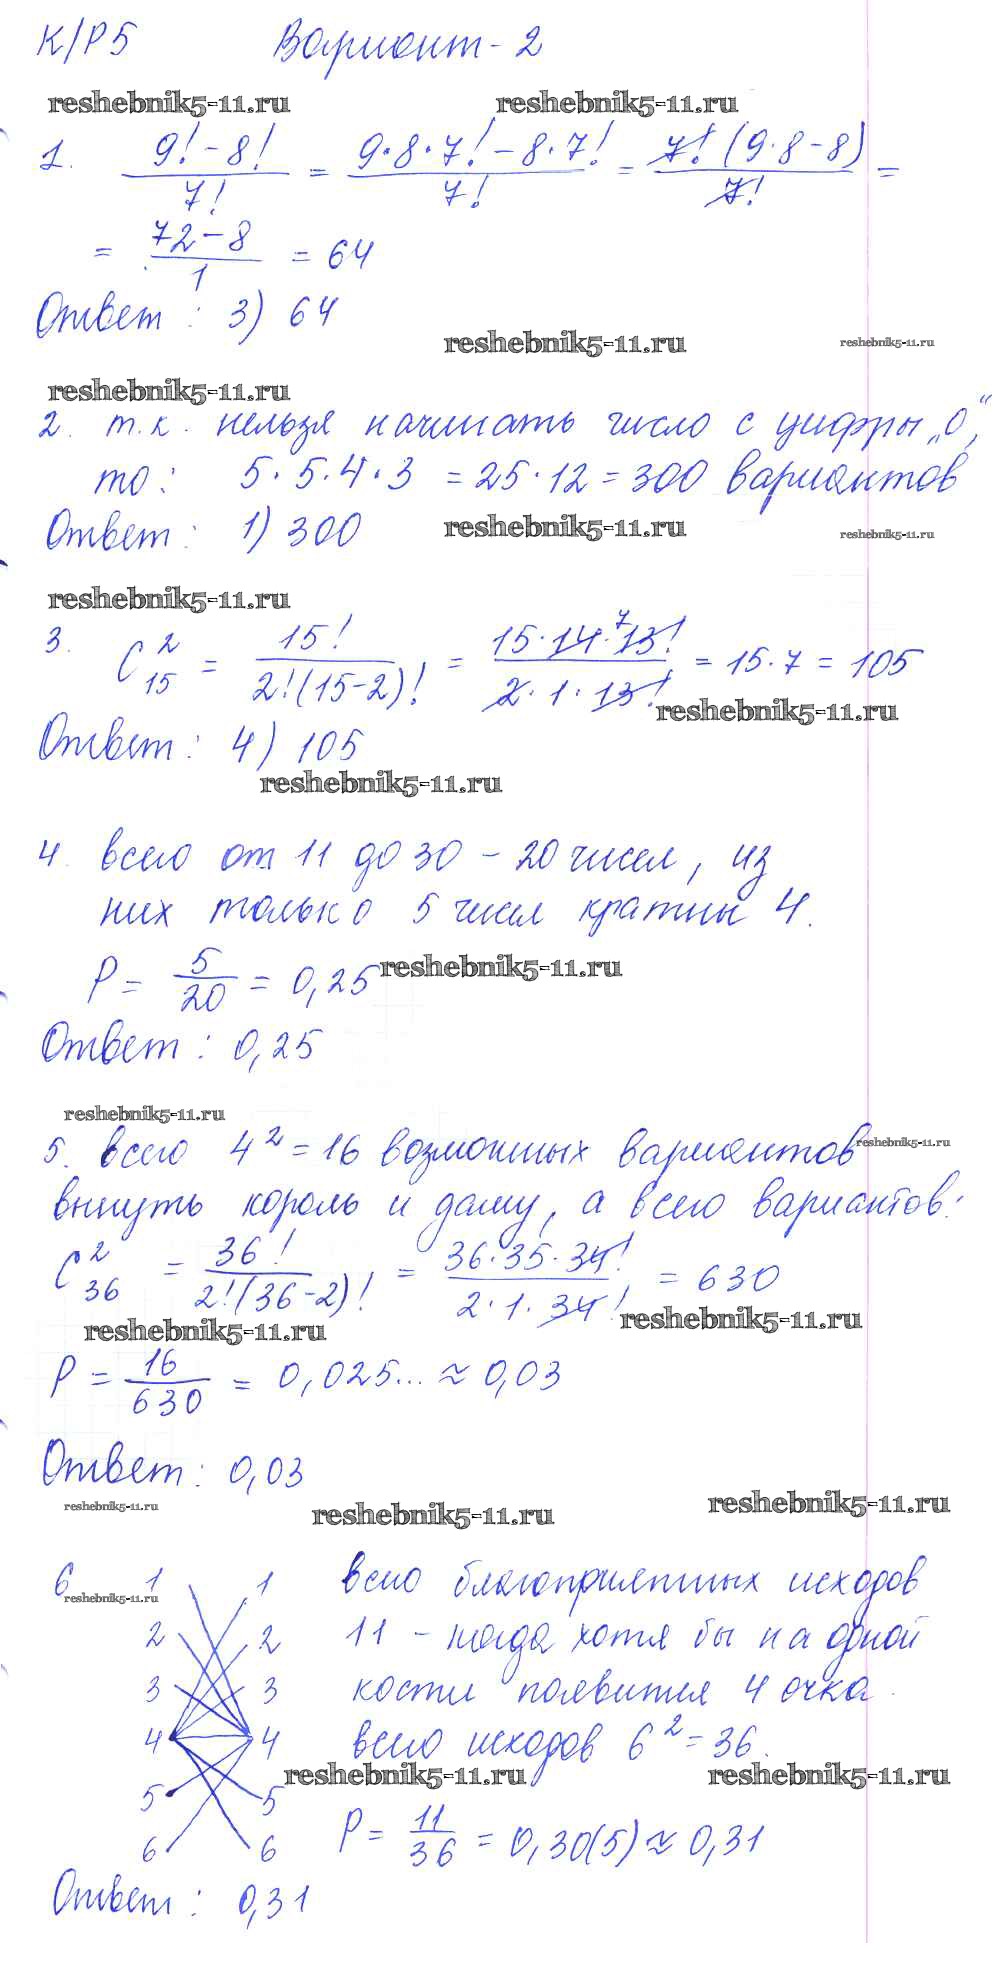 К/Р 5 Вариант - 2
reshebnik5-11.ru reshebnik5-11.ru
1. (9! - 8!)/7! = (9·8·7! - 8·7!)/7! = (7!(9·8-8))/7! =
= (72-8)/1 = 64
Ответ: 3) 64
reshebnik5-11.ru reshebnik5-11.ru
reshebnik5-11.ru
2. т.к. нельзя начинать число с цифры „0",
то: 5·5·4·3 = 25·12 = 300 вариантов
Ответ: 1) 300
reshebnik5-11.ru reshebnik5-11.ru
reshebnik5-11.ru
3. C²₁₅ = 15!/(2!(15-2)!) = (15·14·⁷13!)/(2·1·13!) = 15·7 = 105
reshebnik5-11.ru
Ответ: 4) 105
reshebnik5-11.ru
4. всего от 11 до 30 - 20 чисел, из
них только 5 чисел кратны 4.
P = 5/20 = 0,25 reshebnik5-11.ru
Ответ: 0,25
reshebnik5-11.ru
5. всего 4² = 16 возможных вариантов reshebnik5-11.ru
вынуть король и даму, а всего вариантов:
C²₃₆ = 36!/(2!(36-2)!) = (36·35·34!)/(2·1·34!) = 630
reshebnik5-11.ru reshebnik5-11.ru
P = 16/630 = 0,025... ≈ 0,03
Ответ: 0,03
reshebnik5-11.ru reshebnik5-11.ru reshebnik5-11.ru
6 1 1 всего благоприятных исходов
reshebnik5-11.ru
2 2 11 - когда хотя бы на одной
3 3 кости появится 4 очка.
4 4 всего исходов 6² = 36.
reshebnik5-11.ru reshebnik5-11.ru
5 5
6 6 P = 11/36 = 0,30(5) ≈ 0,31
Ответ: 0,31